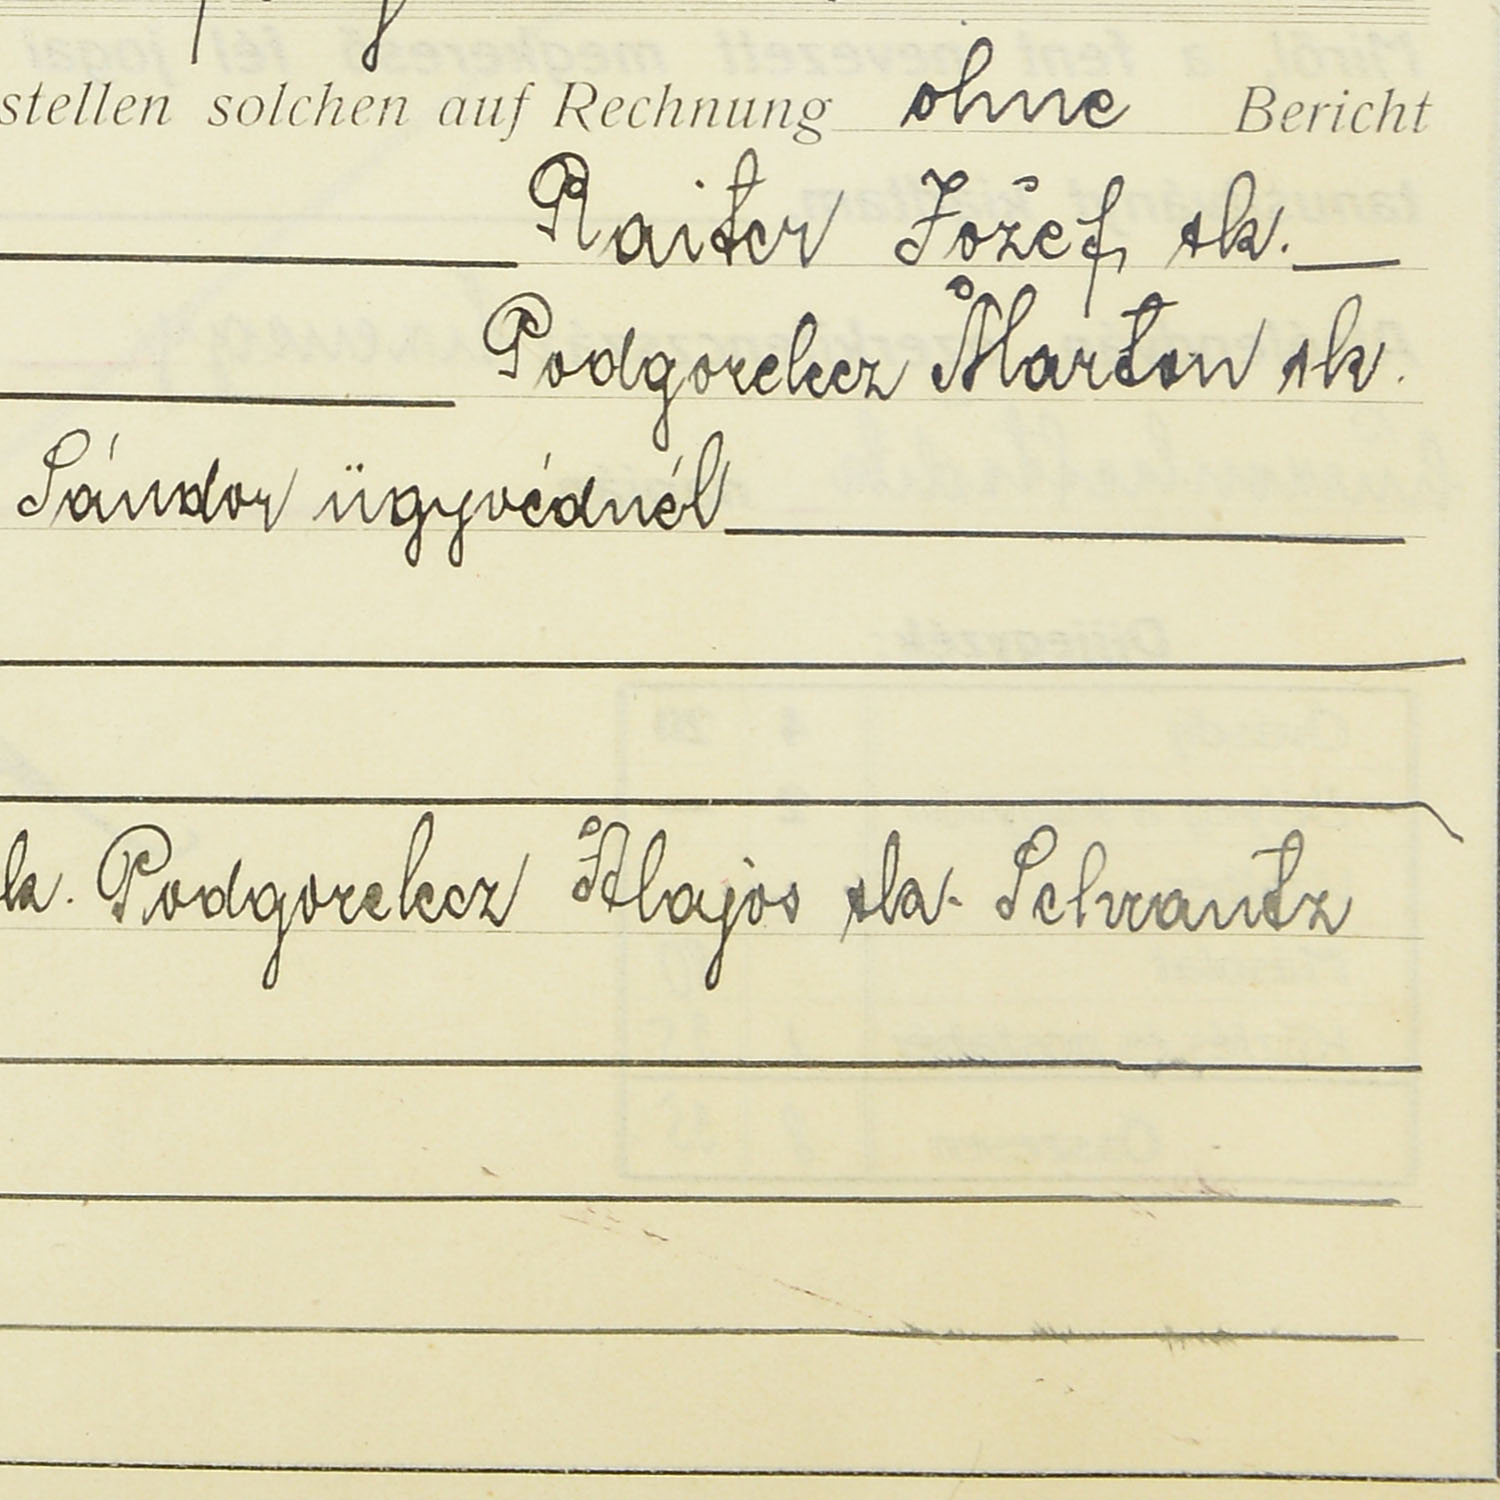 stellen solchen auf Rechnung ohne Bericht
Raiter József sk.
Podgorelecz Márton sk.
Sándor ügyvédnél
k. Podgorelecz Alajos sk. Schrantz